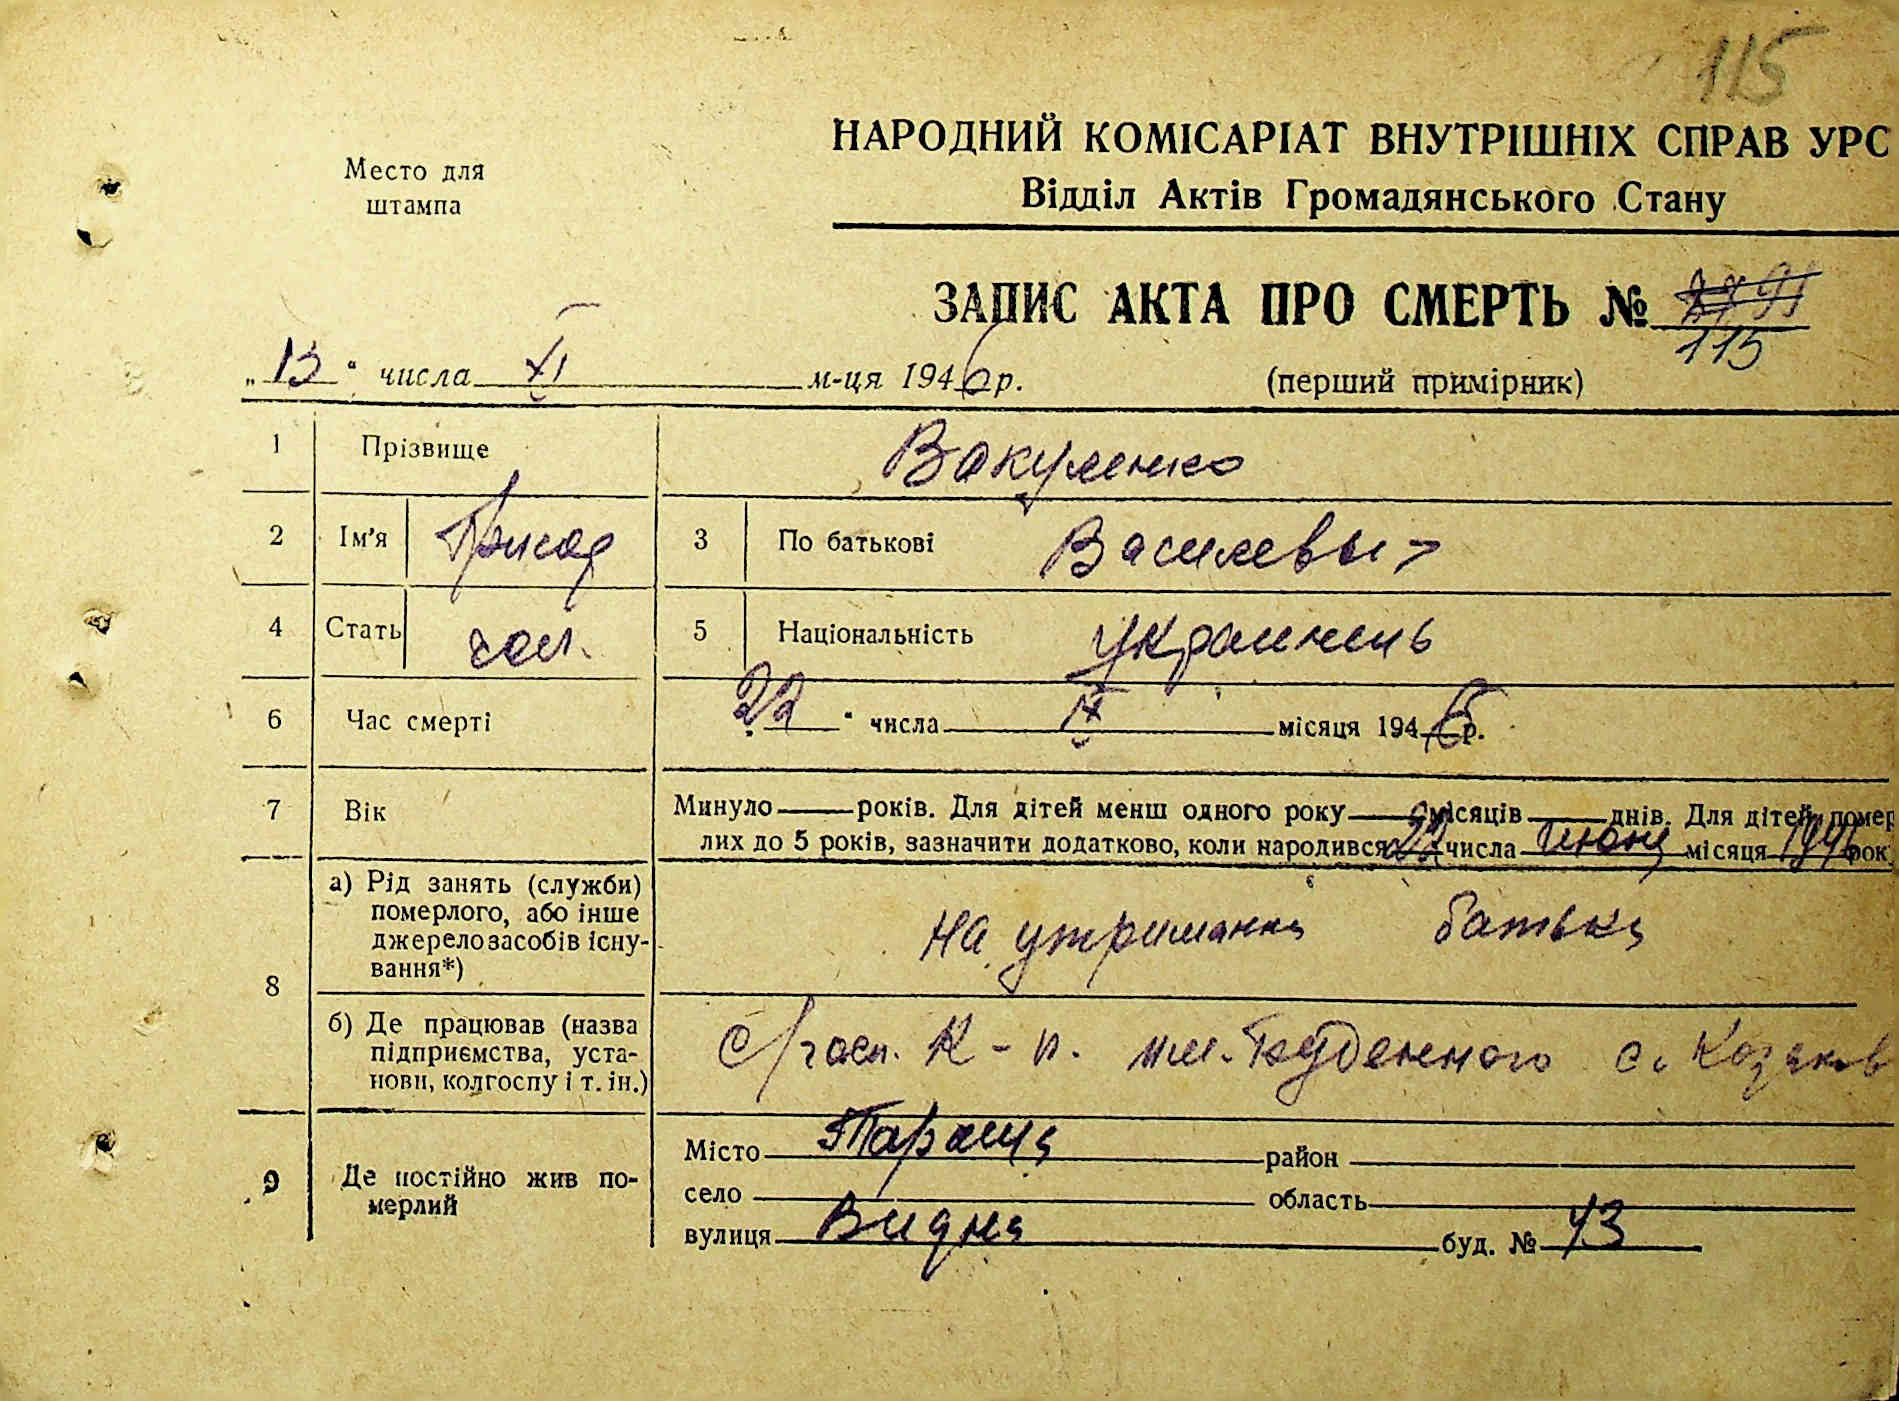 115
НАРОДНИЙ КОМІСАРІАТ ВНУТРІШНІХ СПРАВ УРС
Место для
штампа
Відділ Актів Громадянського Стану
ЗАПИС АКТА ПРО СМЕРТЬ №
115
„13“ числа XI м-ця 1946 р.
(перший примірник)
1 Прізвище Вакуленко
2 Ім'я 3 По батькові
4 Стать чол. 5 Національність
6 Час смерті 22 “ числа IX місяця 1946 р.
7 Вік Минуло років. Для дітей менш одного року місяців днів. Для дітей, помер
лих до 5 років, зазначити додатково, коли народився 22 числа июня місяця рок
8 а) Рід занять (служби) померлого, або інше джерело засобів існування*) на утриманні батька
б) Де працював (назва підприємства, установи, колгоспу і т. ін.) с/госп. К-п. им. Буденного с. Козяков
9 Де постійно жив померлий
Місто Тараща район
село область
вулиця буд. № 43